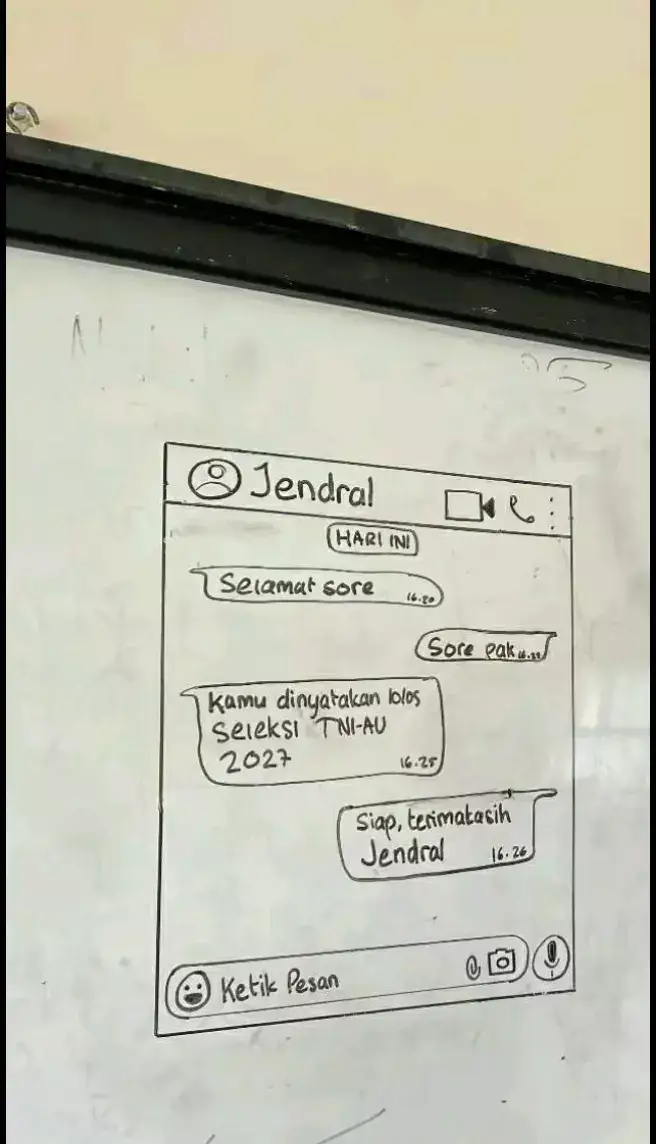 Jendral
HARI INI
Selamat sore
16.20
Sore pak
Kamu dinyatakan lolos
Seleksi TNI-AU
2027
16.25
Siap, terimakasih
Jendral
16.26
Ketik Pesan